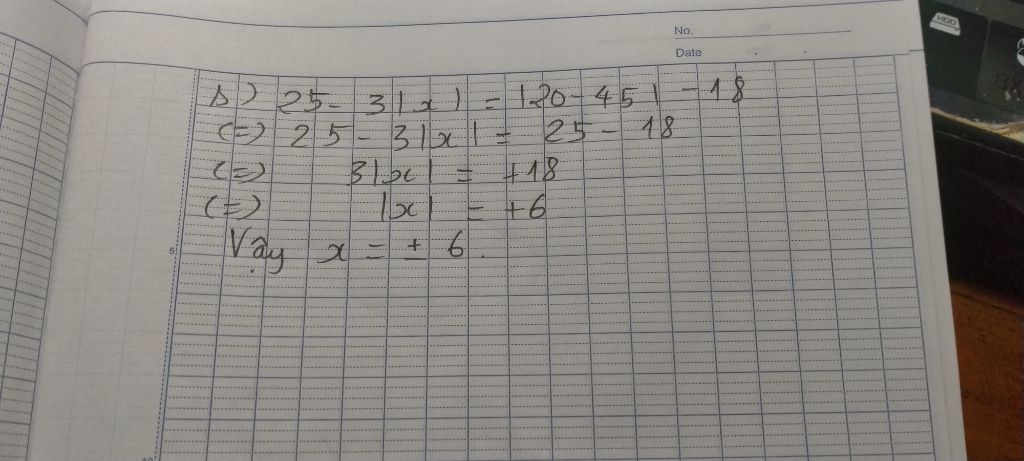 No.
Date
HDD
s) 25 - 3|x| = |20 - 45| - 18
(=) 25 - 3|x| = 25 - 18
(=) 3|x| = +18
(=) |x| = +6
5 Vậy x = ± 6.
10